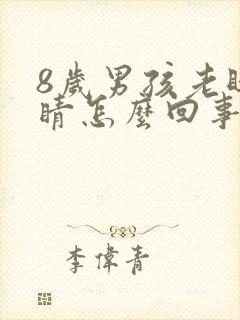 8歲男孩老眨
睛怎麼回事
李偉青